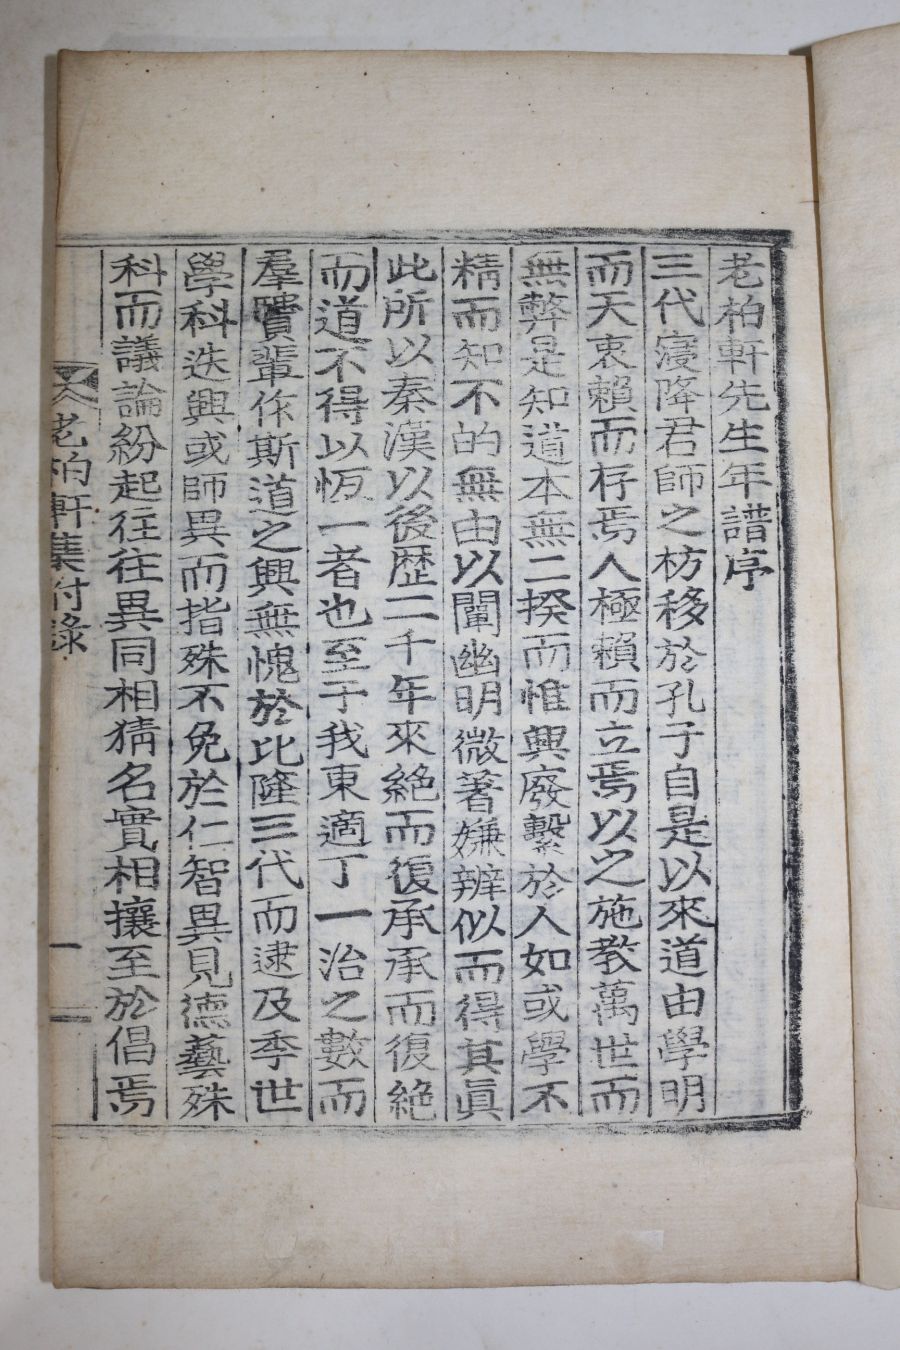 老柏軒先生年譜序
三代寖降君師之枋移於孔子自是以來道由學明
而天衷賴而存焉人極賴而立焉以之施教萬世而
無弊是知道本無二揆而惟興廢繫於人如或學不
精而知不的無由以闡幽明微著嫌辨似而得其眞
此所以秦漢以後歷二千年來絶而復承承而復絶
而道不得以恆一者也至于我東適丁一治之數而
羣贒輩作斯道之興無愧於比隆三代而逮及季世
學科迭興或師異而指殊不免於仁智異見德藝殊
科而議論紛起往往異同相猜名實相攘至於倡焉
老柏軒集附錄 一